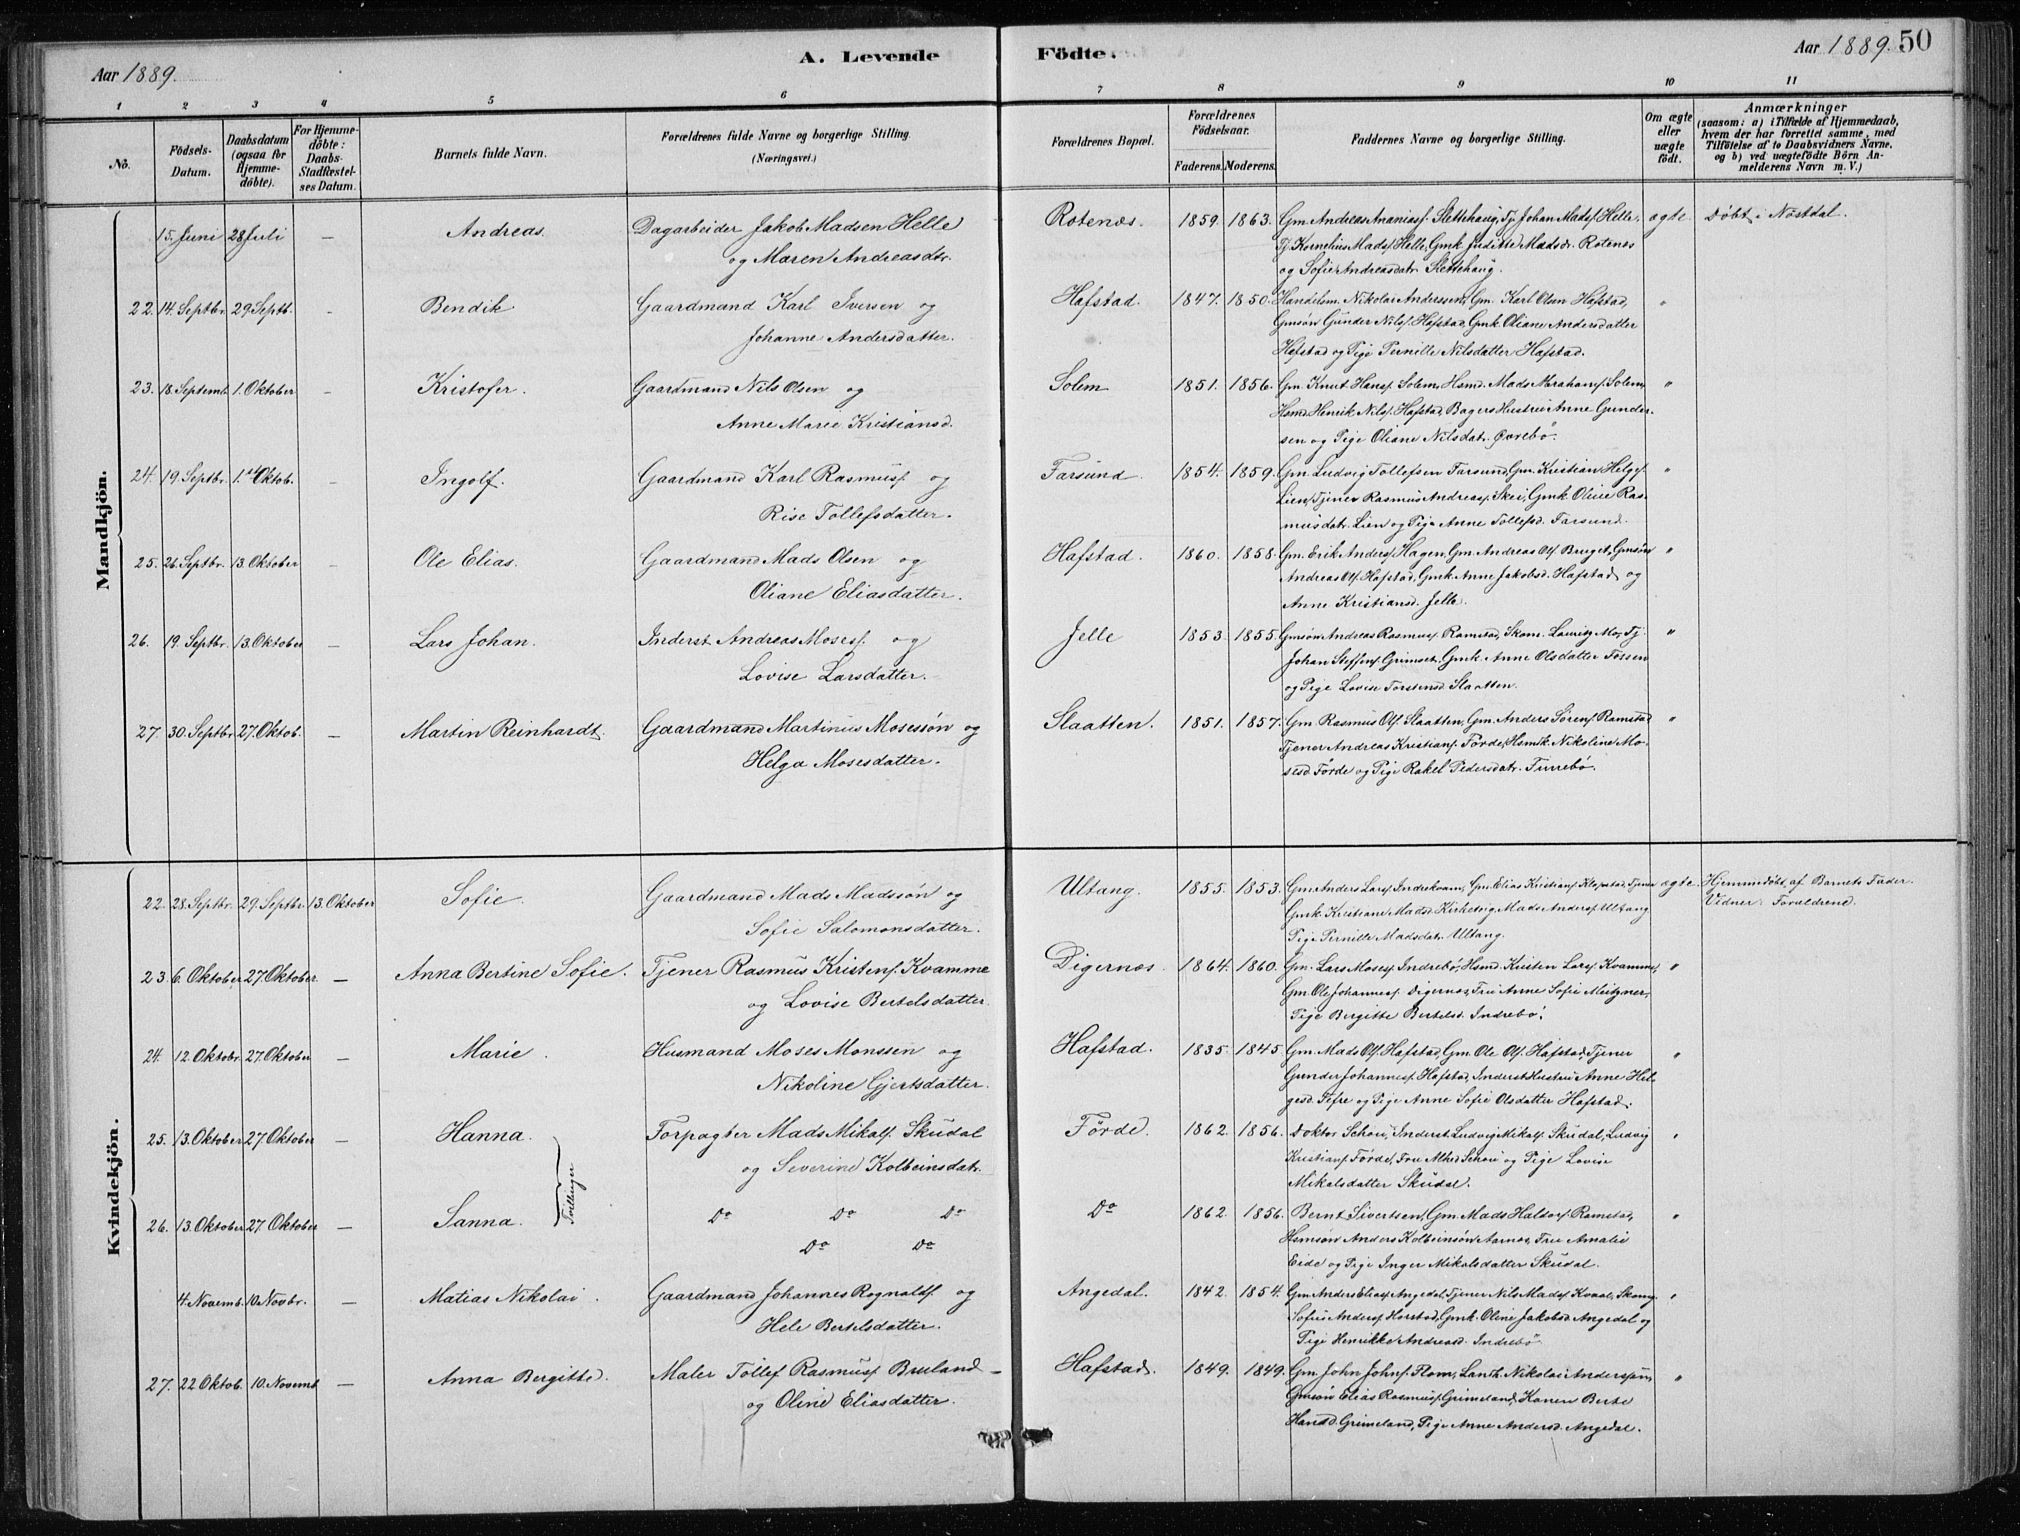 Aar 1889.
A. Levende
Födte.
Aar 1889.
50
1 2 3 4 5 6 7 8 9 10 11
No.
Födsels-Datum.
Daabsdatum (ogsaa for Hjemme-döbte).
For Hjemme-döbte: Daabs-Stadfæstel-ses Datum.
Barnets fulde Navn.
Forældrenes fulde Navne og borgerlige Stilling.
(Næringsvei.)
Forældrenes Bopæl.
Forældrenes Födselsaar.
Faderens. Moderens.
Faddernes Navne og borgerlige Stilling.
Om ægte eller uægte födt.
Anmærkninger
(saasom: a) i Tilfælde af Hjemmedaab,
hvem der har forrettet samme, med
Tilföielse af to Daabsvidners Navne,
og b) ved uægtefödte Börn An-
melderens Navn m.V.)
Mandkjön.
15. Juni 28 Juli — Andreas. Dagarbeider Jakob Madsen Helle Rotenæs. 1859. 1863. Gm Andreas Ananiasf. Slettehaug, Tj. Johan Madsf. Helle, ægte Döbt i Nöstdal.
og Maren Andreasdtr. Tj. Kornelius Madsf. Helle, Gmk. Juditte Madsdr. Rotenes
og Sofie Andreasdatr. Slettehaug.
22. 14. Septbr. 29 Septb. - Bendik Gaardmand Karl Iversen og Hafstad. 1847. 1850. Handelsm. Nikolai Anderssen, Gm. Karl Olsen Hafstad, "
Johanne Andersdatter. Gmsön Gunder Nilsf. Hafstad, Gmk. Oliane Andersdatter
Hafstad og Pige Pernille Nilsdatter Hafstad.
23. 18. Septemb. 1. Oktober - Kristofer. Gaardmand Nils Olsen og Solem 1851. 1856. Gm. Knut Hansf. Solem, Hsmd. Mads Abrahamsf. Solem, "
Anne Marie Kristiansd. Hsmd. Henrik Nilsf. Hafstad, Bagers Hustru Anne Gunder-
sen og Pige Oliane Nilsdatr. Övrebö.
24. 19. Septbr. 1. Oktob. - Ingolf. Gaardmand Karl Rasmusf. og Farsund. 1854. 1859. Gm. Ludvig Tollefsen Farsund, Gm. Kristian Helgef. "
Rise Tollefsdatter. Lien, Tjener Rasmus Andreasf. Skei, Gmk. Oline Ras-
musdatr. Lien og Pige Anne Tollefsd. Farsund.
25. 26. Septbr. 13. Oktober - Ole Elias. Gaardmand Mads Olsen og Hafstad. 1860. 1858. Gm. Erik Andersf. Hagen, Gm. Andreas Olf. Bruget, Gmsön "
Oliane Eliasdatter. Andreas Olf. Hafstad, Gmk. Anne Jakobsd. Hafstad og
Anne Kristiansd. Jelle.
26. 19. Septbr. 13. Oktober — Lars Johan. Inderst Andreas Mosesf. og Jelle 1853. 1855. Gmsön Andreas Rasmusf. Ramstad, Skom. Lauritz Mo, Tj. "
Lovise Larsdatter. Johan Steffensf. Grimset, Gmk. Anne Olsdatter Fossen
og Pige Lovise Torstensd. Slaatten.
27. 30. Septbr. 27. Oktob. — Martin Reinhardt. Gaardmand Martinus Mosessön og Slaatten. 1851. 1857. Gm. Rasmus Olf. Slaatten, Gm. Anders Sörensf. Ramstad "
Helga Mosesdatter. Tjener Andreas Kristiansf. Förde, Hsmdk. Nikoline Mo-
sesd. Förde og Pige Rakel Pedersdatr. Furrebö.
Kvindekjön.
22. 28. Septbr. 29. Septbr. 13. Oktober Sofie. Gaardmand Mads Madssön og Ultang. 1855. 1853. Gm. Anders Larsf. Indrekvam, Gm. Elias Kristiansf. Klopstad, Tjener ægte. Hjemmedöbt af Barnets Fader.
Sofie Salomonsdatter. Gmk. Kristiane Madsd. Kirketeig, Mads Andersf. Ultang Vidner: Forældrene.
Pige Pernille Madsdatr. Ultang.
23. 6. Oktober 27. Oktober — Anna Bertine Sofie. Tjener Rasmus Kristensf. Kvamme Digernes. 1864. 1860. Gm. Lars Mosesf. Indrebö, Hsmd. Kristen Larsf. Kvamme, "
og Lovise Bertelsdatter. Gm. Ole Johannesf. Digernes, Fru Anne Sofie Meitzner,
Pige Bergitte Bertelsd. Indrebö.
24. 12. Oktobr. 27. Oktober — Marie. Husmand Moses Monssen og Hafstad. 1835. 1845. Gm. Mads Olf. Hafstad, Gm. Ole Olf. Hafstad, Tjener "
Nikoline Gjertsdatter. Gunder Johannesf. Hafstad, Inderst Hustru Anne Hel-
gesd. Tefre og Pige Anne Sofie Olsdatter Hafstad.
25. 13. Oktober 27. Oktober — Hanna. Forpagter Mads Mikalf. Skudal Förde. 1862. 1856. Doktor Schou, Inderst Ludvig Mikalf. Skudal, Ludvig "
og Severine Kolbeinsdatr. Kristiansf. Förde, Fru Schou og Pige Lovise
Mikelsdatter Skudal.
Tvillinger
26. 13. Oktober 27. Oktober — Sanna. Do Do Do Do 1862. 1856. Bernt Sivertsen, Gm. Mads Haldorf. Ramstad, "
Do Do Hsmsön Anders Kolbeinsön Aarnes, Fru Amalie
Eide og Pige Inger Mikalsdatter Skudal.
4. Novemb. 10. Novbr. — Matias Nikolai. Gaardmand Johannes Rognaldf. og Angedal. 1842. 1854. Gm. Anders Eliasf. Angedal, Tjener Nils Madsf. Kvaal, "
Hele Bertelsdatter. Andersf. Horstad, Gmk. Oline Jakobsd. Angedal og
Pige Henrikke Andreasd. Indrebö
27. 22 Oktob. 10. Novemb. — Anna Bergitte. Maler Tollef Rasmusf. Bruland — Hafstad. 1849. 1849. Gm. John Johnf. Flom, Lanth. Nikolai Anderssen, "
og Oline Eliasdatter. Gmsön Elias Rasmusf. Grimeland, Konen Berte
Hansd. Grimeland, Pige Anne Andersd. Angedal.